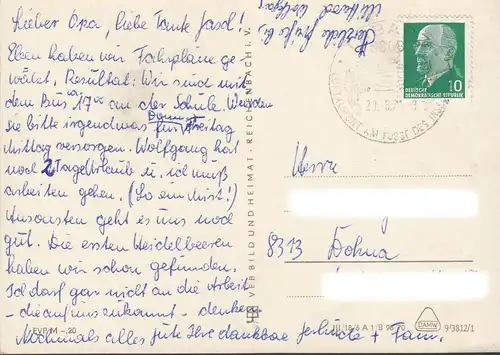 Lieber Opa, liebe Tante Jasol!
Eben haben wir Fahrpläne ge-
wälzt, Resultat: Wir sind mit
dem Bus ca. 17⁰⁰ an der Schule. Würden
Sie bitte irgendwas für Freitag
Mittag versorgen. Wolfgang hat
noch 2 Tage Urlaub u. ich muß
arbeiten gehen. (So ein Mist!)
Ansonsten geht es uns noch
gut. Die ersten Heidelbeeren
haben wir schon gefunden.
Ich darf gar nicht an die Arbeit
- die auf uns zukommt - denken
Nochmals alles gute Ihre dankbare Gerlinde + Fam.
Herzliche Grüße
Wolfgang
VERBILD UND HEIMAT · REICHENBACH I. V.
DEUTSCHE
DEMOKRATISCHE REPUBLIK
10
AM FUSSE DES
Herrn
8313 Dohna
EVP M -.20
III/18/6 A 1/B 90/70
DAMW
9/3812/1